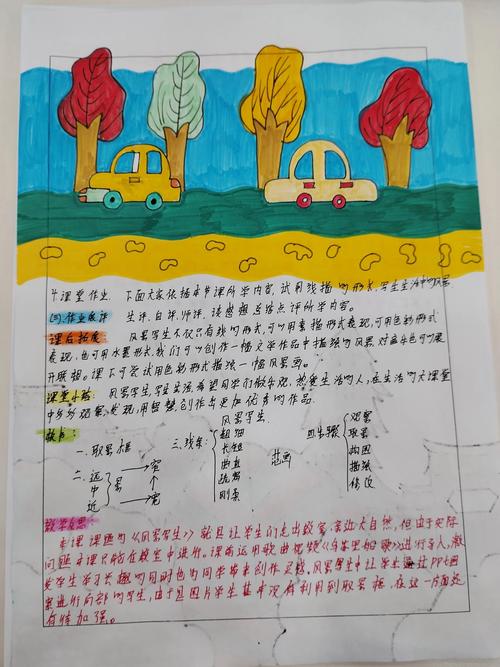 4、课堂作业. 下面大家依据本节课所学内容,试用线描的形式,写生生活中的风景
(三).作业展评 生评、自评、师评,谈感想及结点评所学内容。
课后拓展 风景写生不仅只有线的形式,可以用素描形式表现,可用色彩形式
表现,也可用水墨形式,我们可以创作一幅文学作品中描绘的风景.对画色也可展
开联想。课下可尝试用色彩形式描绘一幅风景画。
课堂小结: 风景写生,写生生活,希望同学们做乐观、热爱生活的人,在生活的大课堂
中多多观察、发现,用智慧创作出更加优秀的作品.
板书: 风景写生
一、取景框
二、远 中 近 景 → 宽 → 宽
三、线条: 粗细 长短 曲直 疏密 刚柔
范画
四、步骤 观察 取景 构图 描绘 修改
教学反思:
本课课题为《风景写生》就是让学生们走出教室,亲近大自然,但由于实际
问题本课只能在教室中进行。课前运用歌曲视频《乌苏里船歌》进行导入,激
发学生学习兴趣的同时也为同学带来创作灵感,风景写生中让学生通过PPT图
案进行局部的写生,由于是图片学生基本没有利用到取景框,在这一方面还
有待加强。